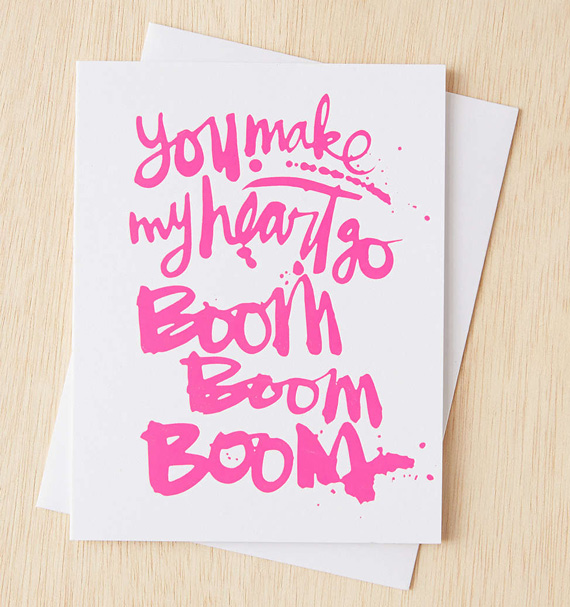 you make
my heart go
BOOM
BOOM
BOOM